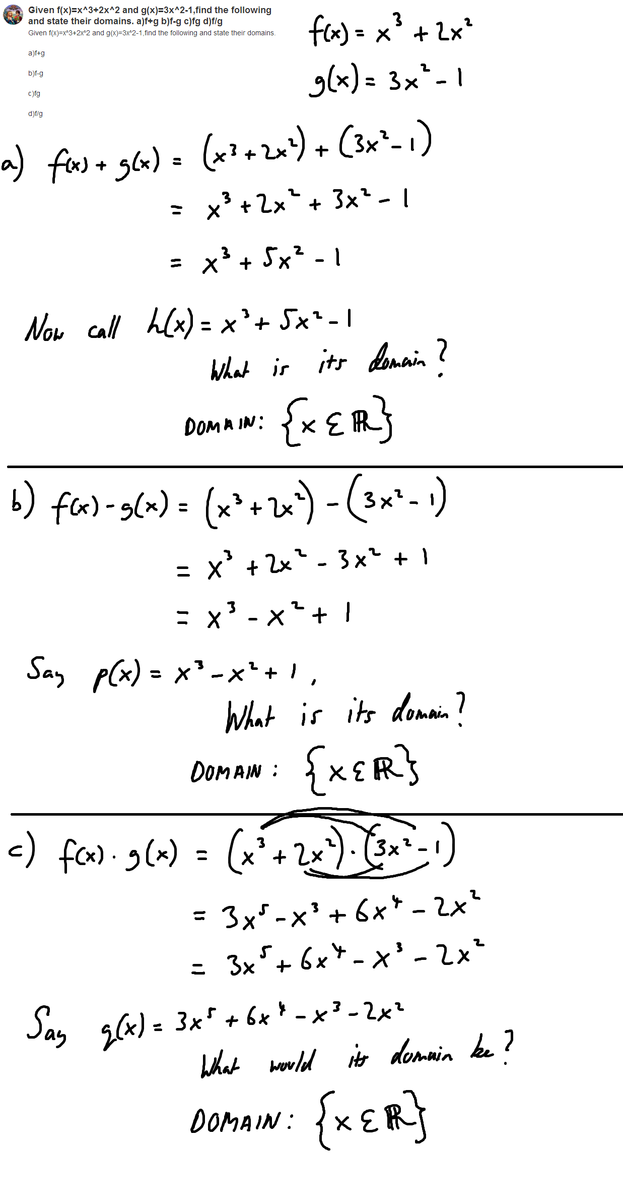 Given f(x)=x^3+2x^2 and g(x)=3x^2-1,find the following
and state their domains. a)f+g b)f-g c)fg d)f/g
Given f(x)=x^3+2x^2 and g(x)=3x^2-1,find the following and state their domains.
a)f+g
b)f-g
c)fg
d)f/g
f(x) = x³ + 2x²
g(x) = 3x² - 1
a) f(x) + g(x) = (x³ + 2x²) + (3x² - 1)
= x³ + 2x² + 3x² - 1
= x³ + 5x² - 1
Now call h(x) = x³ + 5x² - 1
What is its domain?
DOMAIN: {x ε ℝ}
b) f(x) - g(x) = (x³ + 2x²) - (3x² - 1)
= x³ + 2x² - 3x² + 1
= x³ - x² + 1
Say p(x) = x³ - x² + 1,
What is its domain?
DOMAIN: {x ε ℝ}
c) f(x) · g(x) = (x³ + 2x²) · (3x² - 1)
= 3x⁵ - x³ + 6x⁴ - 2x²
= 3x⁵ + 6x⁴ - x³ - 2x²
Say q(x) = 3x⁵ + 6x⁴ - x³ - 2x²
What would its domain be?
DOMAIN: {x ε ℝ}